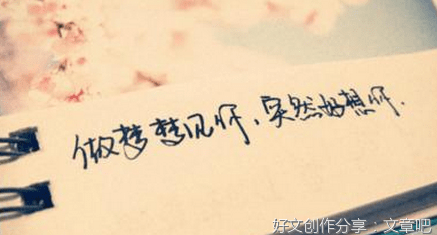 做梦梦见你,突然好想你.
好文创作分享：文章吧